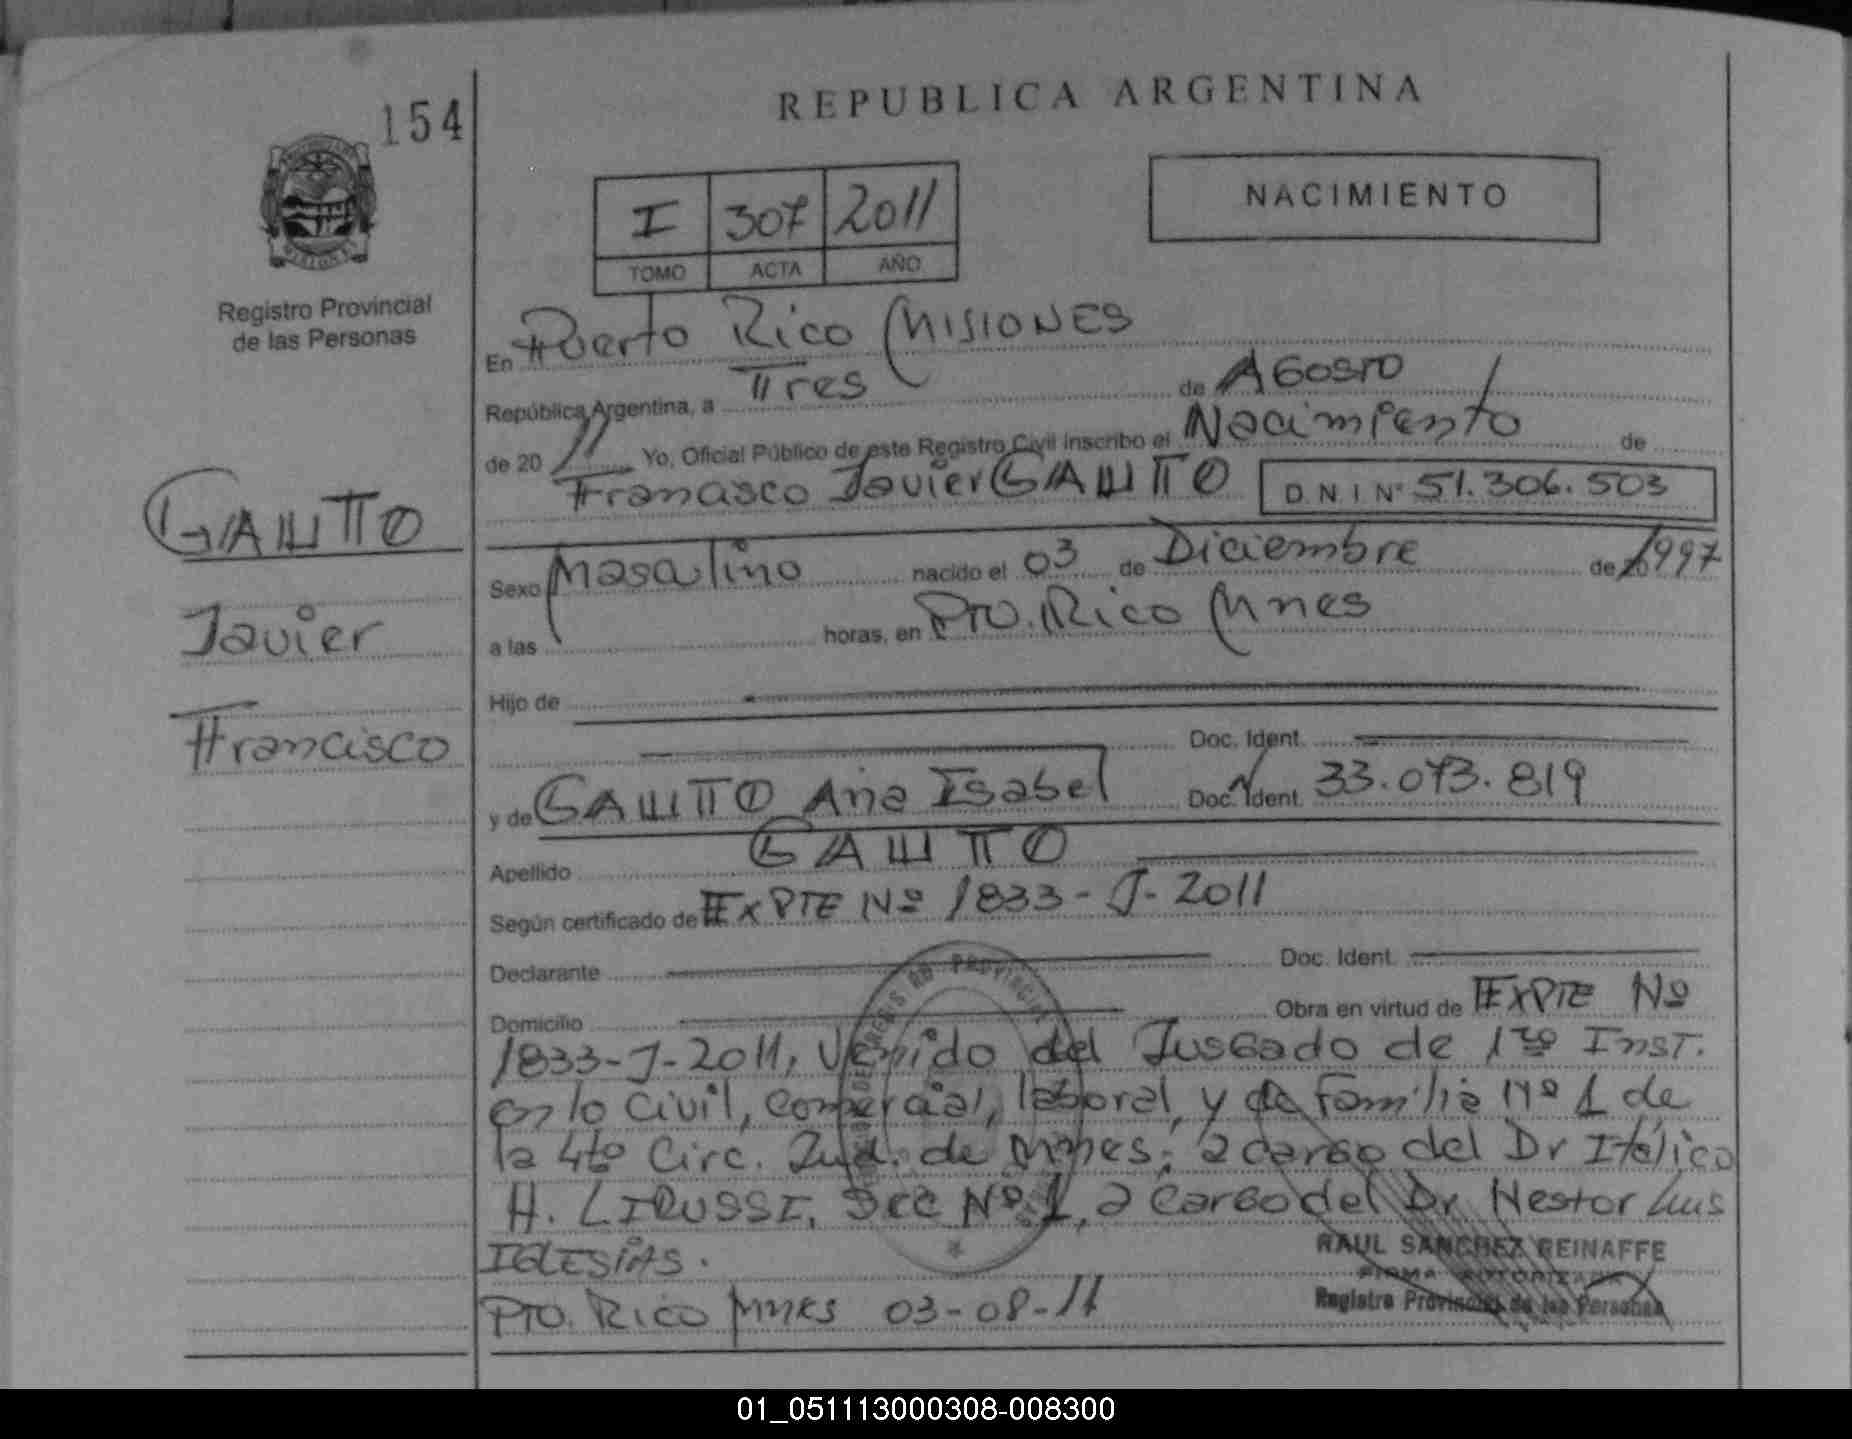 154
REPUBLICA ARGENTINA
NACIMIENTO
I 307 2011
TOMO ACTA AÑO
MISIONES
Registro Provincial
de las Personas
En Puerto Rico Misiones
República Argentina, a Tres de Agosto
de 2011 Yo, Oficial Público de este Registro Civil inscribo el Nacimiento de
Francisco Javier GAUTO D.N.I Nº 51.306.503
GAUTO
Javier
Francisco
Sexo Masculino nacido el 03 de Diciembre de 1997
a las horas, en Pto. Rico Mnes
Hijo de
Doc. Ident.
y de GAUTO Ana Isabel Doc. Ident. 33.073.819
Apellido GAUTO
Según certificado de EXPTE Nº 1833-J-2011
Declarante Doc. Ident.
Domicilio Obra en virtud de EXPTE Nº
1833-J-2011, Venido del Jusgado de 1ra Inst.
en lo Civil, comercial, laboral, y de Familia Nº 1 de
la 4ta Circ. Jud. de Mnes, a cargo del Dr Itálico
H. LIRUSSI, Sec Nº 1, a cargo del Dr. Nestor Luis
IGLESIAS.
Pto. Rico Mnes 03-08-11
RAUL SANCHEZ REINAFFE
FIRMA AUTORIZADA
Registro Provincial de las Personas
01_051113000308-008300